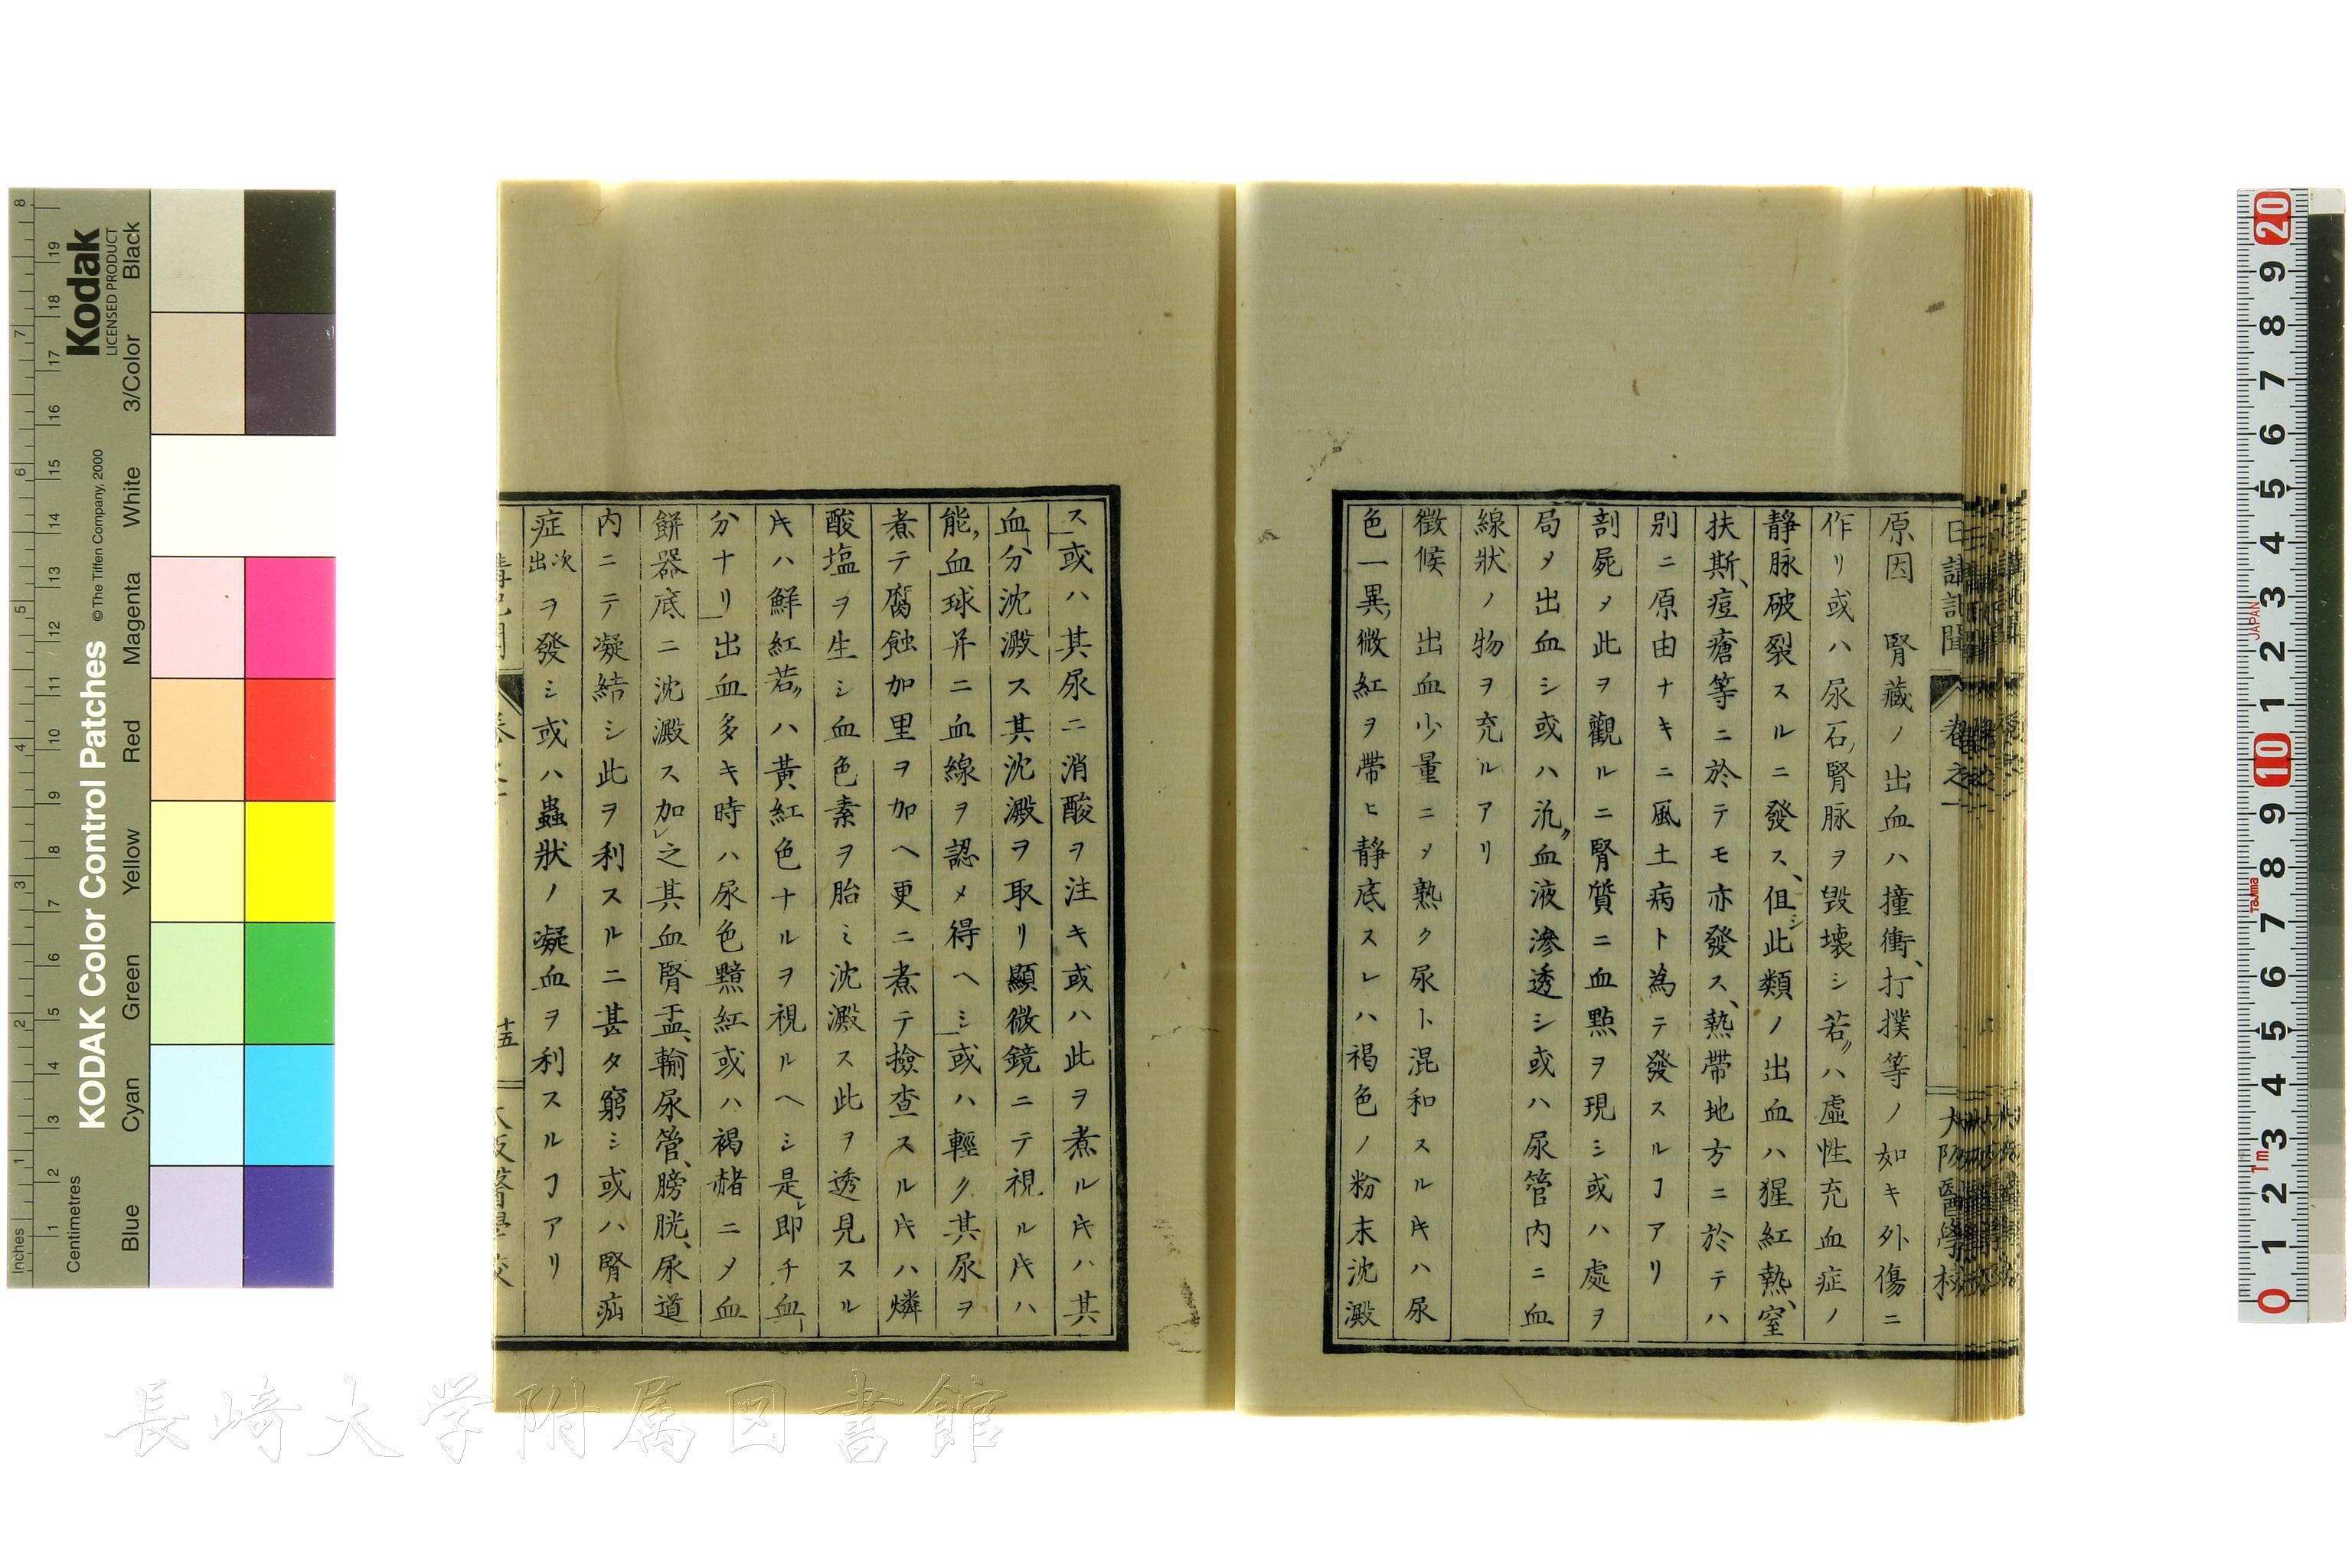 日講記聞 卷之一 大阪醫學校
原因 腎藏ノ出血ハ撞衝、打撲等ノ如キ外傷ニ
作リ或ハ尿石、腎脉ヲ毀壞シ若〃ハ虚性充血症ノ
静脉破裂スルニ發ス、但シ此類ノ出血ハ猩紅熱、窒
扶斯、痘瘡等ニ於テモ亦發ス、熱帶地方ニ於テハ
別ニ原由ナキニ風土病ト為テ發スルヿアリ
剖屍メ此ヲ觀ルニ腎質ニ血點ヲ現シ或ハ處ヲ
局メ出血シ或ハ汎〃血液滲透シ或ハ尿管内ニ血
線狀ノ物ヲ充ルアリ
徵候 出血少量ニメ熟ク尿ト混和スル𪜈ハ尿
色一異、微紅ヲ帶ヒ静底スレハ褐色ノ粉末沈澱
ス或ハ其尿ニ消酸ヲ注キ或ハ此ヲ煮ル𪜈ハ其
血分沈澱ス其沈澱ヲ取リ顯微鏡ニテ視ル𪜈ハ
能、血球并ニ血線ヲ認メ得ヘシ或ハ輕ク其尿ヲ
煮テ腐蝕加里ヲ加ヘ更ニ煮テ撿査スル𪜈ハ燐
酸塩ヲ生シ血色素ヲ胎ミ沈澱ス此ヲ透見スル
𪜈ハ鮮紅若〃ハ黃紅色ナルヲ視ルヘシ是レ即チ血
分ナリ出血多キ時ハ尿色黯紅或ハ褐赭ニメ血
餅器底ニ沈澱ス加レ之其血腎盂、輸尿管、膀胱、尿道
内ニテ凝結シ此ヲ利スルニ甚タ窮シ或ハ腎疝
症次出ヲ發シ或ハ蟲狀ノ凝血ヲ利スルヿアリ
十五
Kodak
LICENSED PRODUCT
KODAK Color Control Patches
©The Tiffen Company, 2000
Inches
Centimetres
Blue Cyan Green Yellow Red Magenta White 3/Color Black
JAPAN
Tajima
1m
長崎大学附属図書館